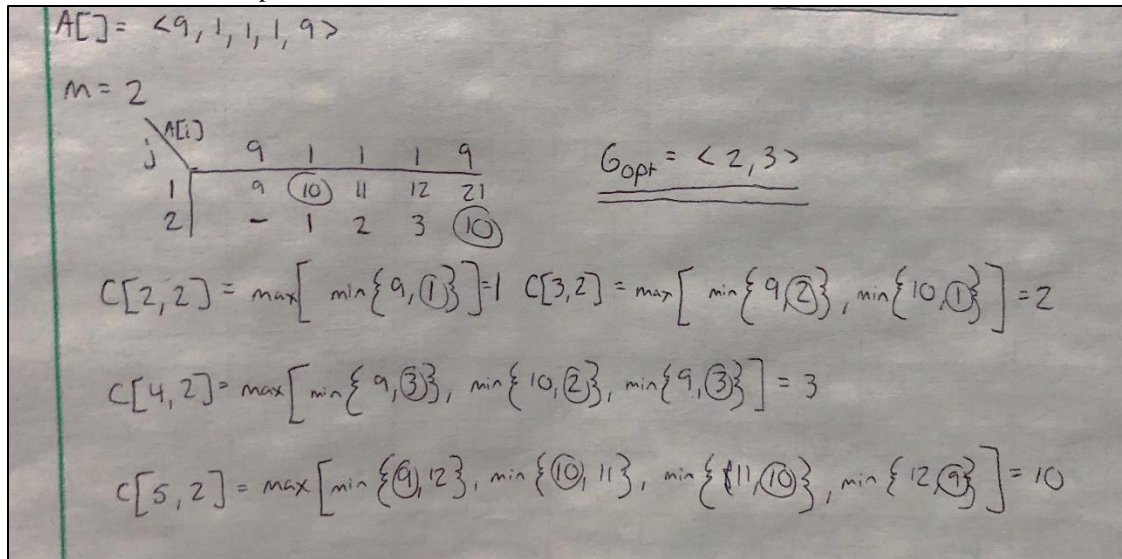 A[] = <9, 1, 1, 1, 9>
m = 2
A[i]
j 9 1 1 1 9
1 9 10 11 12 21
2 - 1 2 3 10
Gopt = <2, 3>
C[2,2] = max[ min{9,1}]=1 C[3,2] = max[ min{9,2}, min{10,1}] = 2
C[4,2] = max[min{9,3}, min{10,2}, min{9,3}] = 3
C[5,2] = max[min{9,12}, min{10,11}, min{11,10}, min{12,9}] = 10